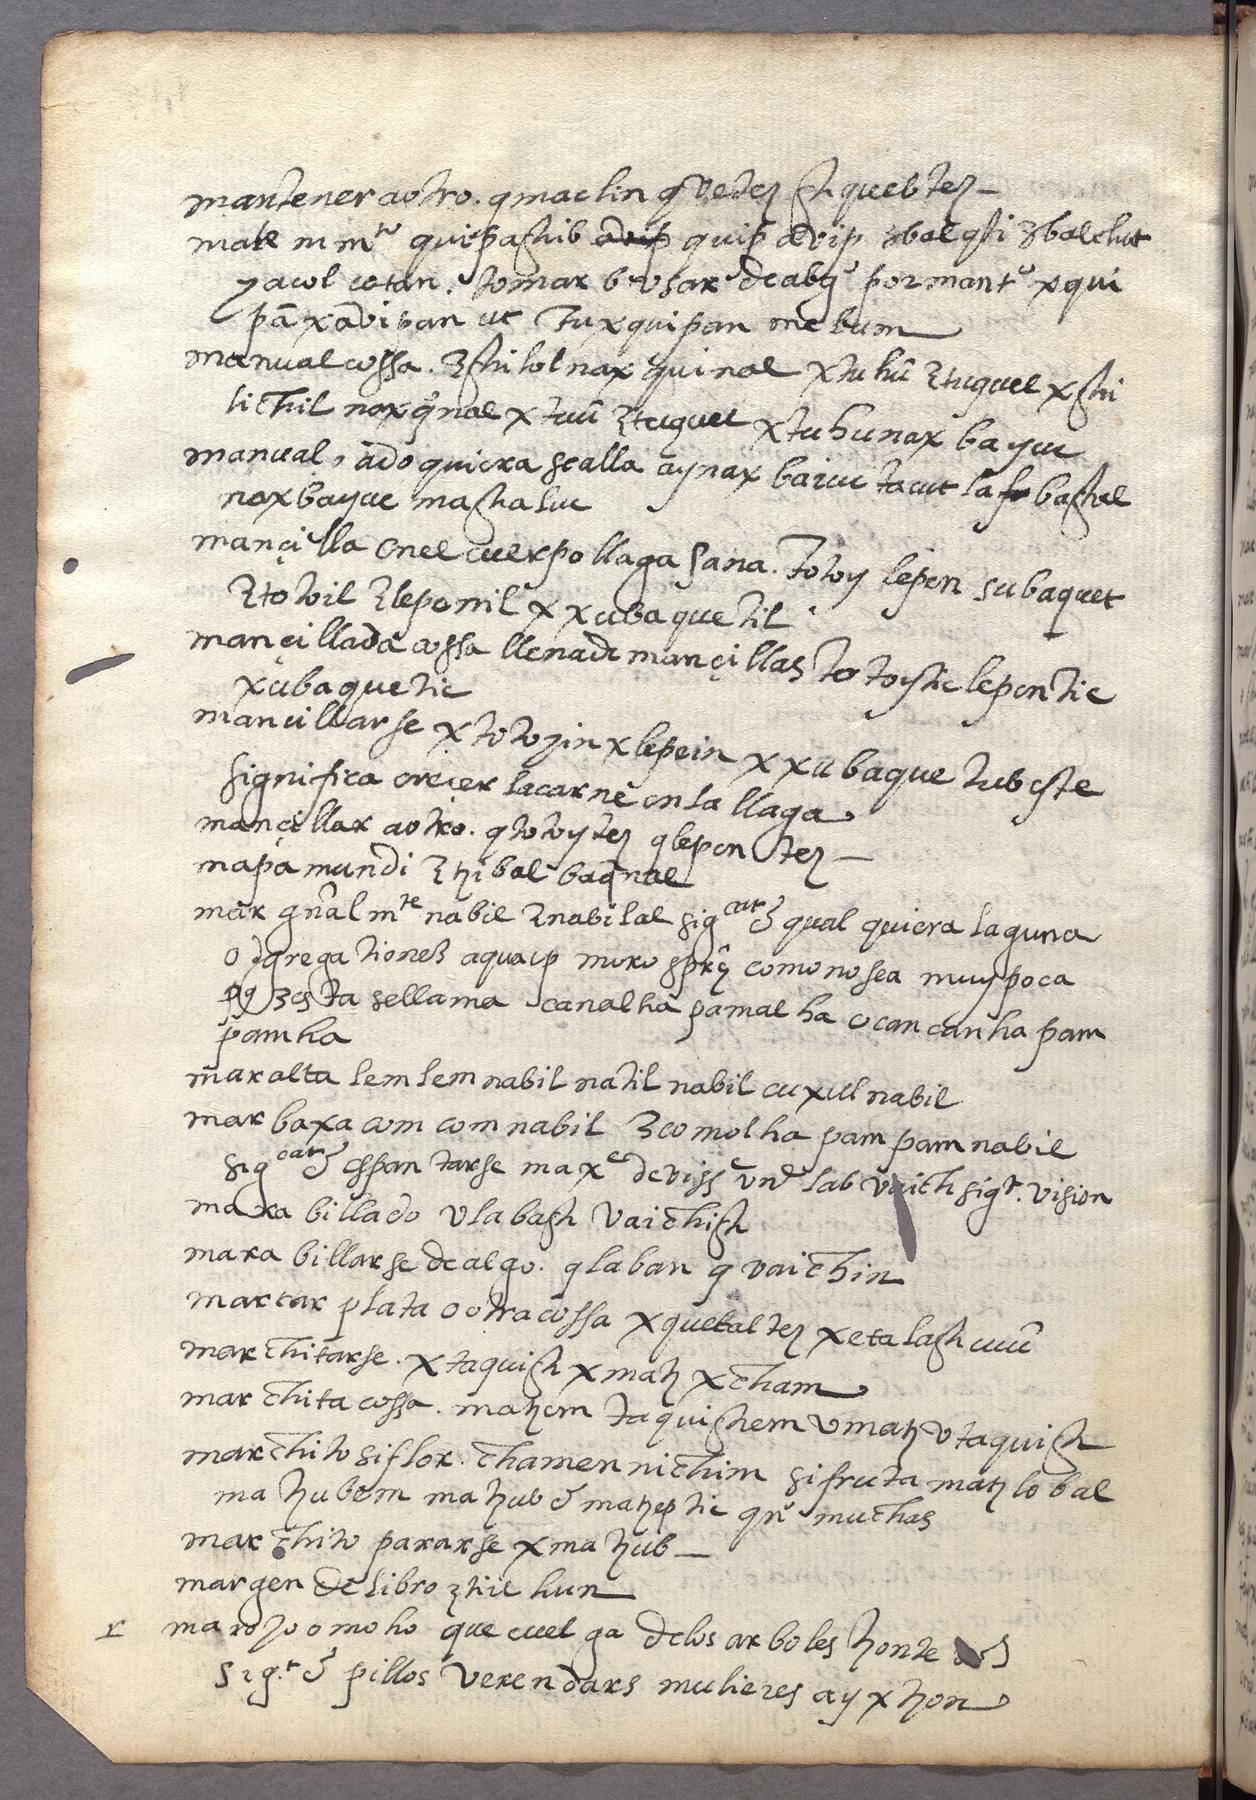 mantener aotro. qmaclin qveteʒ ɠhquebteʒ
mate mmte quipaghib quip avip ʒbalqti ʒbalchut
yacol cotan. tomar bvsar dealg por mant xqui
pā xavipan ut tuxquipan me bum
manual cossa. ʒghitol nax quinal xtuhū ʒtuquel xghi
lichil nax qnal xtuū ʒtuquel xtuhunax bayuc
manual, ado quiera sealla aynax baiuc tacut la baghel
nax bayuc maghaluc
mançilla enel cuerpo llaga sana. Totoy lepen subaquet
ʒtotoil ʒleponil xxubaquetil
mançillada cossa llenade mançillas totoytic lepentic
xubaquetic
mancillarse xtotozin xlepein xxubaque tub este
significa crecer lacarne enla llaga
mançillar aotro. qtotoyteʒ qlepenteʒ
mapa mundi ʒtzibal baqnal
mar gnal mte nabil ʒnabilal sigcat qual quiera laguna
o gregationes aquarp como nosea muy poca
pq ʒesta sellama canalha pamalha ocan canha pam
pamha
mar alta lemlem nabil natil nabil cuxul nabil
mar baxa com com nabil ʒcomolha pam pam nabil
sigcat espantarse maxe deviss vnd lab vaich sigt. vision
marabillado vlabagh vaichigh
marabillarse dealgo. qlaban qvaichin
marcar plata o otra cossa xquetalteʒ xetalagh cuū
marchitarse. xtaquigh xmatz xcham
marchita cossa. matzem taquighem vmatz vtaquigh
marchito siflor. chamen nichim sifruta matz lobal
matzubem matzub matzeptic qn muchas
marchito pararse xmatzub
margen de libro ʒtiil hun
r marojo o moho que cuelga delos arboles tzonte
sigt pillos verendars mulieres ay xtzon